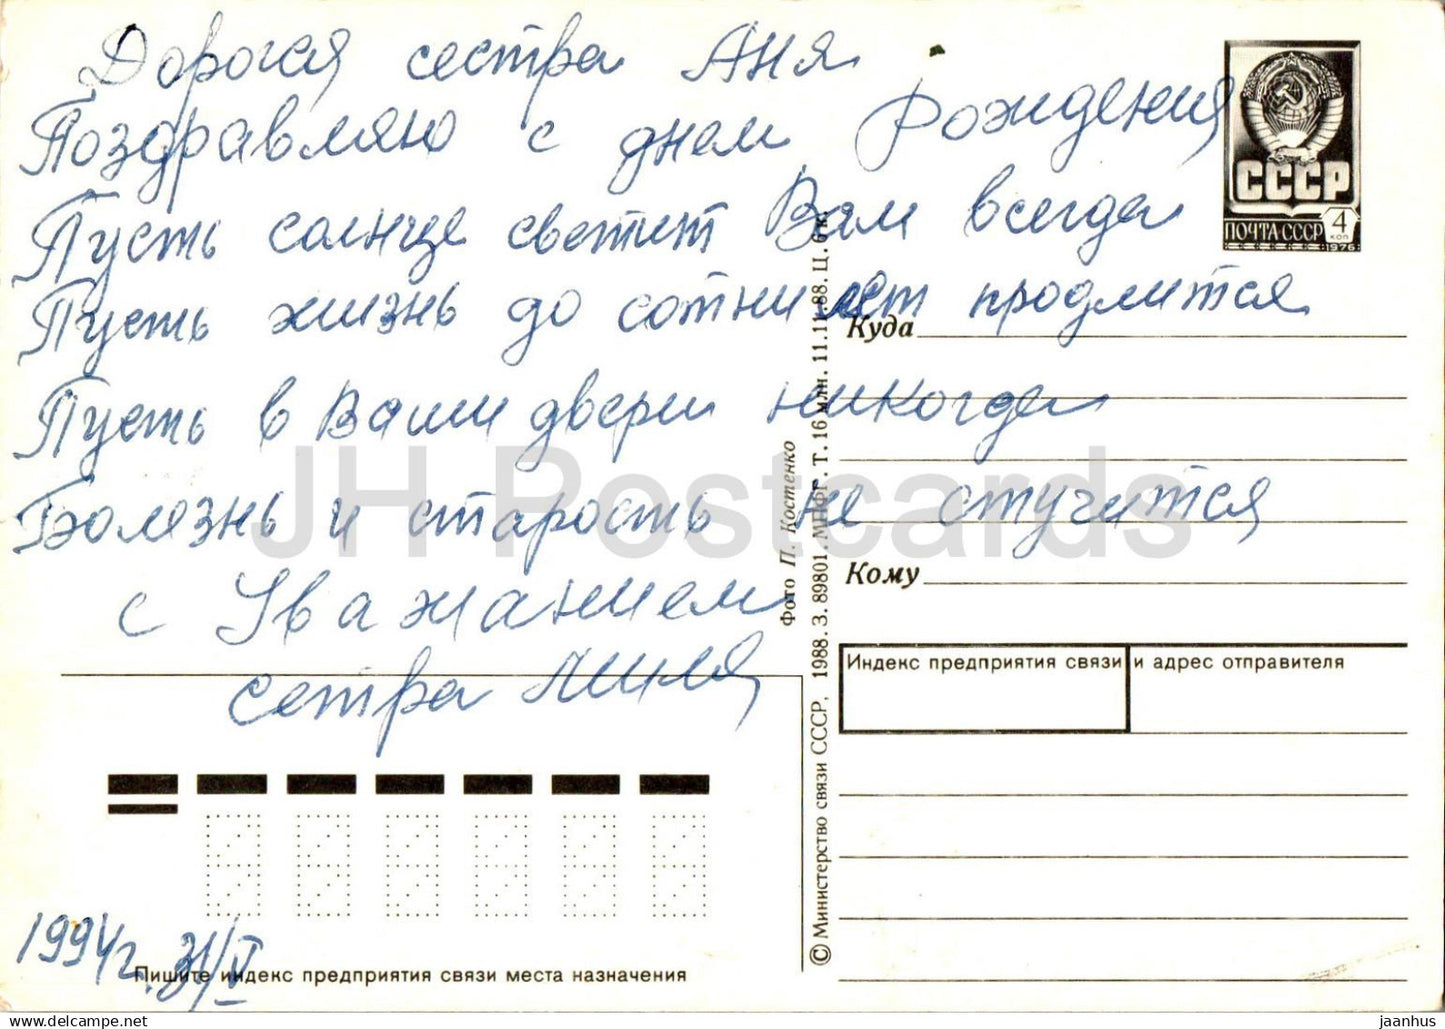 Дорогая сестра Аня
Поздравляю с днем Рождения
Пусть солнце светит Вам всегда
Пусть жизнь до сотни лет продлится
Пусть в Ваши двери никогда
Болезнь и старость не стучится
с Уважением
сетра Лиля
1994г. 31/V
Пишите индекс предприятия связи места назначения
Фото П. Костенко
© Министерство связи СССР, 1988. З. 89801. МПФГ. Т. 16 млн. 11.11.88. Ц. 6 к.
СССР
ПОЧТА СССР 4 коп
1976
Куда
Кому
Индекс предприятия связи и адрес отправителя
JH Postcards
delcampe.net
jaanhus